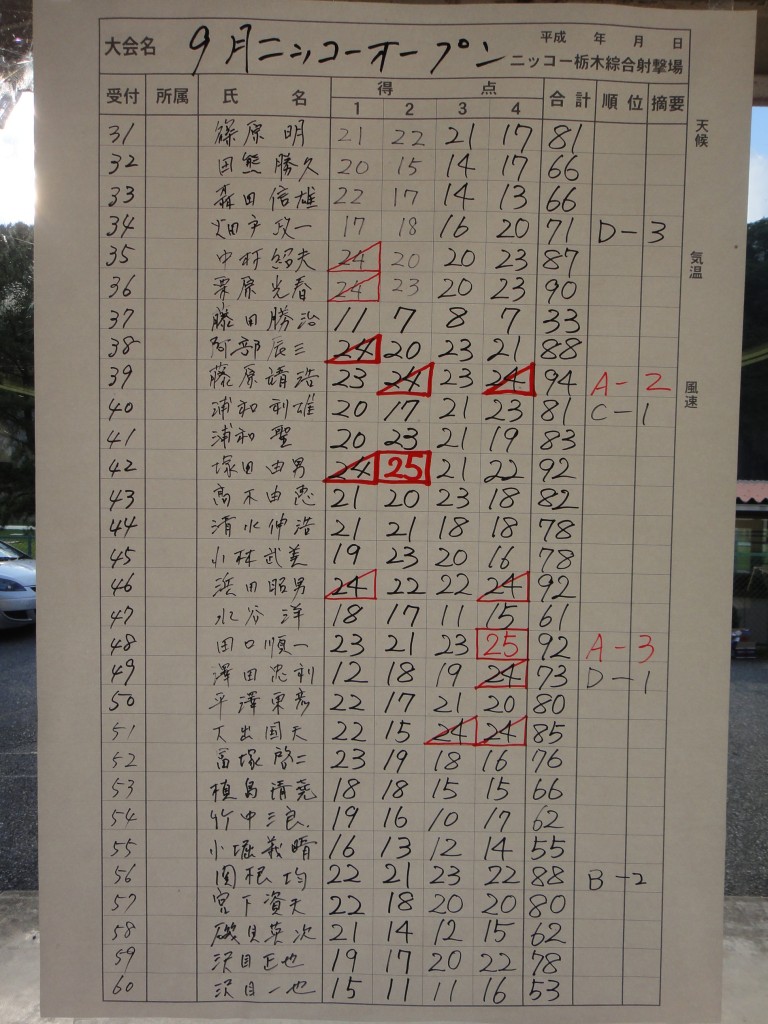 大会名 9月ニッコーオープン 平成 年 月 日
ニッコー栃木綜合射撃場
受付 所属 氏名 得点 合計 順位 摘要
1 2 3 4
天候
気温
風速
31 篠原 明 21 22 21 17 81
32 田熊勝久 20 15 14 17 66
33 森田信雄 22 17 14 13 66
34 畑戸政一 17 18 16 20 71 D-3
35 中村紹夫 24 20 20 23 87
36 栗原光春 24 23 20 23 90
37 藤田勝治 11 7 8 7 33
38 阿部辰三 24 20 23 21 88
39 藤原靖浩 23 24 23 24 94 A-2
40 浦和利雄 20 17 21 23 81 C-1
41 浦和 聖 20 23 21 19 83
42 塚田由男 24 25 21 22 92
43 高木由恵 21 20 23 18 82
44 清水伸浩 21 21 18 18 78
45 小林武美 19 23 20 16 78
46 浜田昭男 24 22 22 24 92
47 水谷 洋 18 17 11 15 61
48 田口順一 23 21 23 25 92 A-3
49 澤田忠利 12 18 19 24 73 D-1
50 平澤 22 17 21 20 80
51 大出国夫 22 15 24 24 85
52 冨塚啓二 23 19 18 16 76
53 植島清尭 18 18 15 15 66
54 竹中三良 19 16 10 17 62
55 小堀義晴 16 13 12 14 55
56 関根 均 22 21 23 22 88 B-2
57 宮下資夫 22 18 20 20 80
58 磯貝英次 21 14 12 15 62
59 沢目正也 19 17 20 22 78
60 沢目一也 15 11 11 16 53